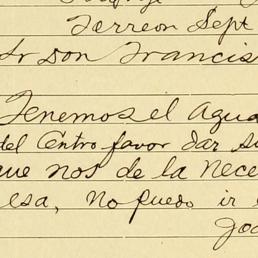 Torreon Sept
Sr Don Francis
Tenemos el Agua
del Centro favor dar su
que nos de la Nece
esa, No puedo ir